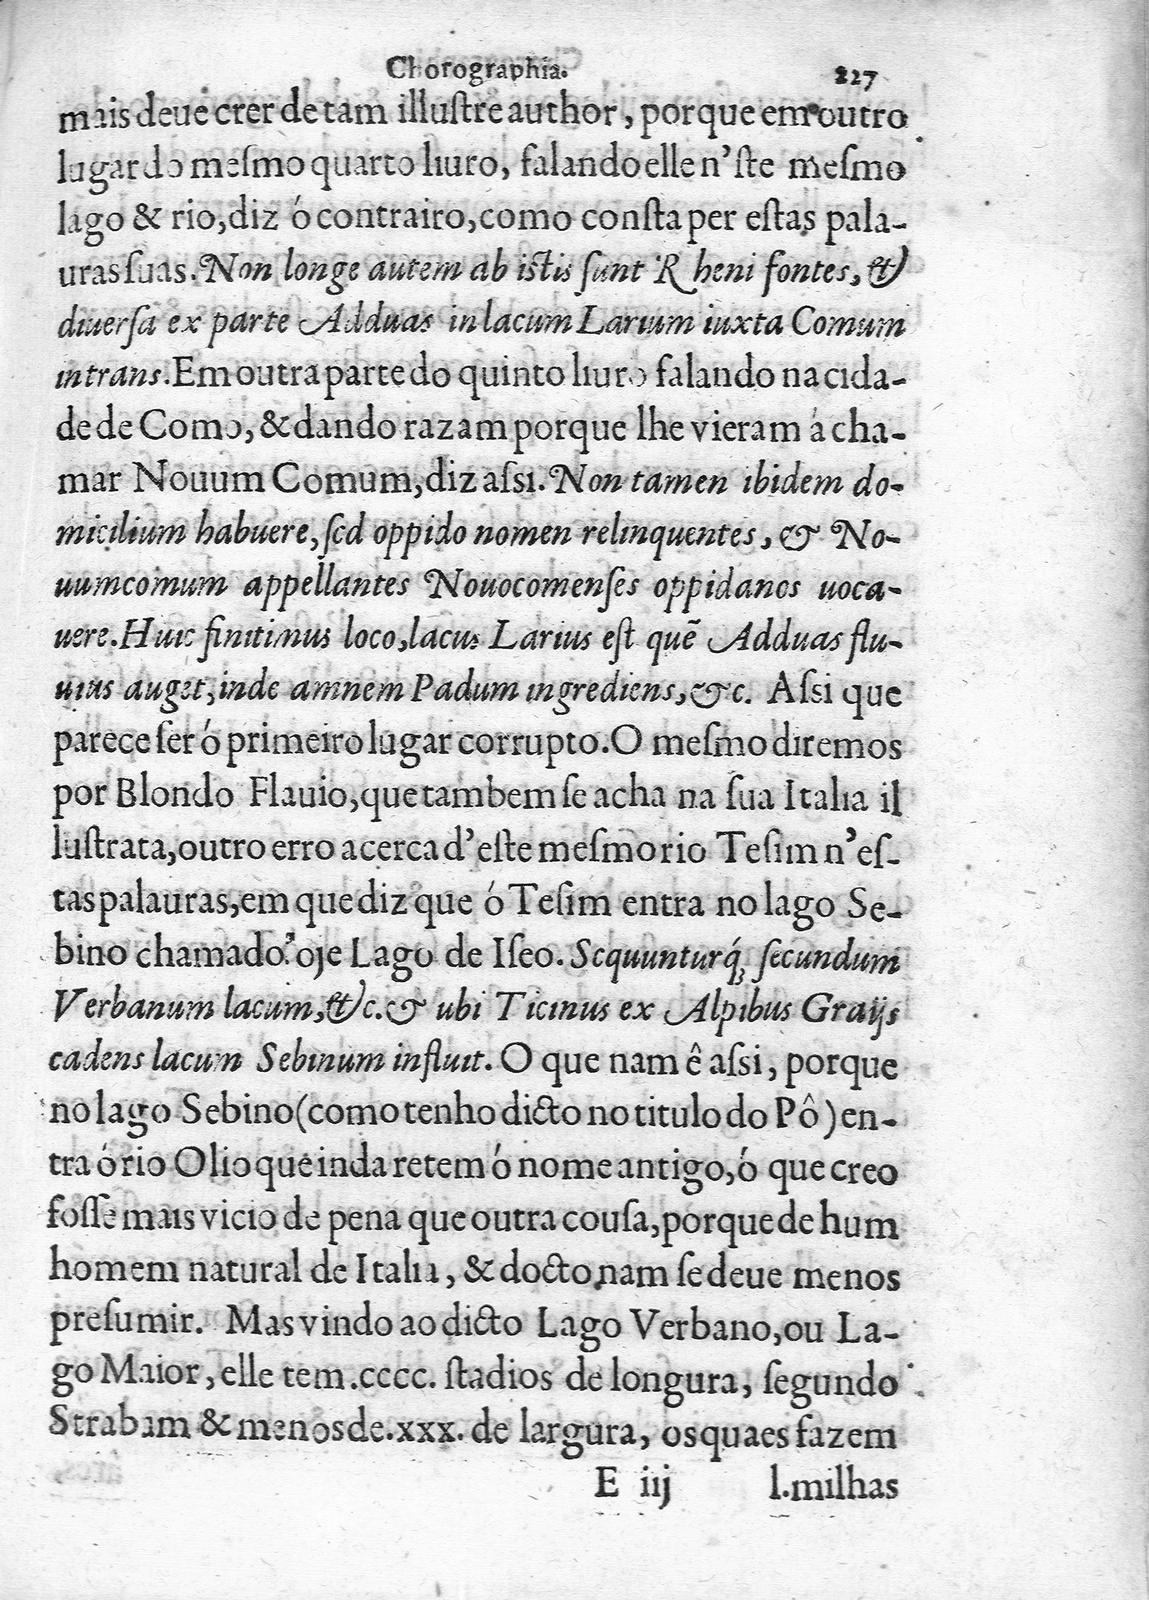 Chorographia. 227
mais deue crer de tam illuſtre author, porque em outro
lugar do meſmo quarto liuro, falando elle n'ſte meſmo
lago & rio, diz ó contrairo, como conſta per eſtas pala-
uras ſuas. Non longe autem ab iſtis ſunt Rheni fontes, &
diuerſa ex parte Adduas in lacum Larium iuxta Comum
intrans. Em outra parte do quinto liuro falando na cida-
de de Como, & dando razam porque lhe vieram á cha-
mar Nouum Comum, diz aſsi. Non tamen ibidem do-
micilium habuere, ſed oppido nomen relinquentes, & No-
uumcomum appellantes Nouocomenſes oppidanos uoca-
uere. Huic finitimus loco, lacus Larius eſt quẽ Adduas flu-
uius auget, inde amnem Padum ingrediens, &c. Aſsi que
parece ſer ó primeiro lugar corrupto. O meſmo diremos
por Blondo Flauio, que tambem ſe acha na ſua Italia il
luſtrata, outro erro acerca d'eſte meſmo rio Teſim n'eſ-
tas palauras, em que diz que ó Teſim entra no lago Se-
bino chamado 'oje Lago de Iſeo. Sequunturq́; ſecundum
Verbanum lacum, &c. & ubi Ticinus ex Alpibus Graijs
cadens lacum Sebinum influit. O que nam ê aſsi, porque
no lago Sebino (como tenho dicto no titulo do Pô) en-
tra ó rio Olio que inda retem ó nome antigo, ó que creo
foſſe mais vicio de pena que outra couſa, porque de hum
homem natural de Italia, & docto nam ſe deue menos
preſumir. Mas vindo ao dicto Lago Verbano, ou La-
go Maior, elle tem .cccc. ſtadios de longura, ſegundo
Strabam & menos de .xxx. de largura, os quaes fazem
E iij l. milhas